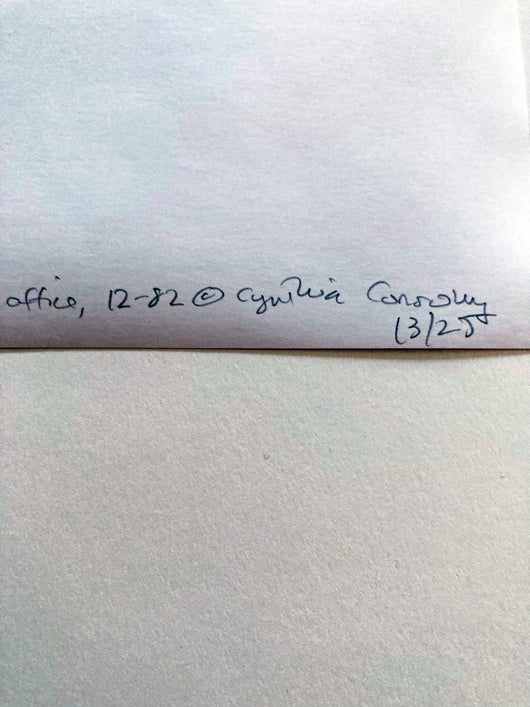 office, 12-82 © Cynthia Connolly
13/25